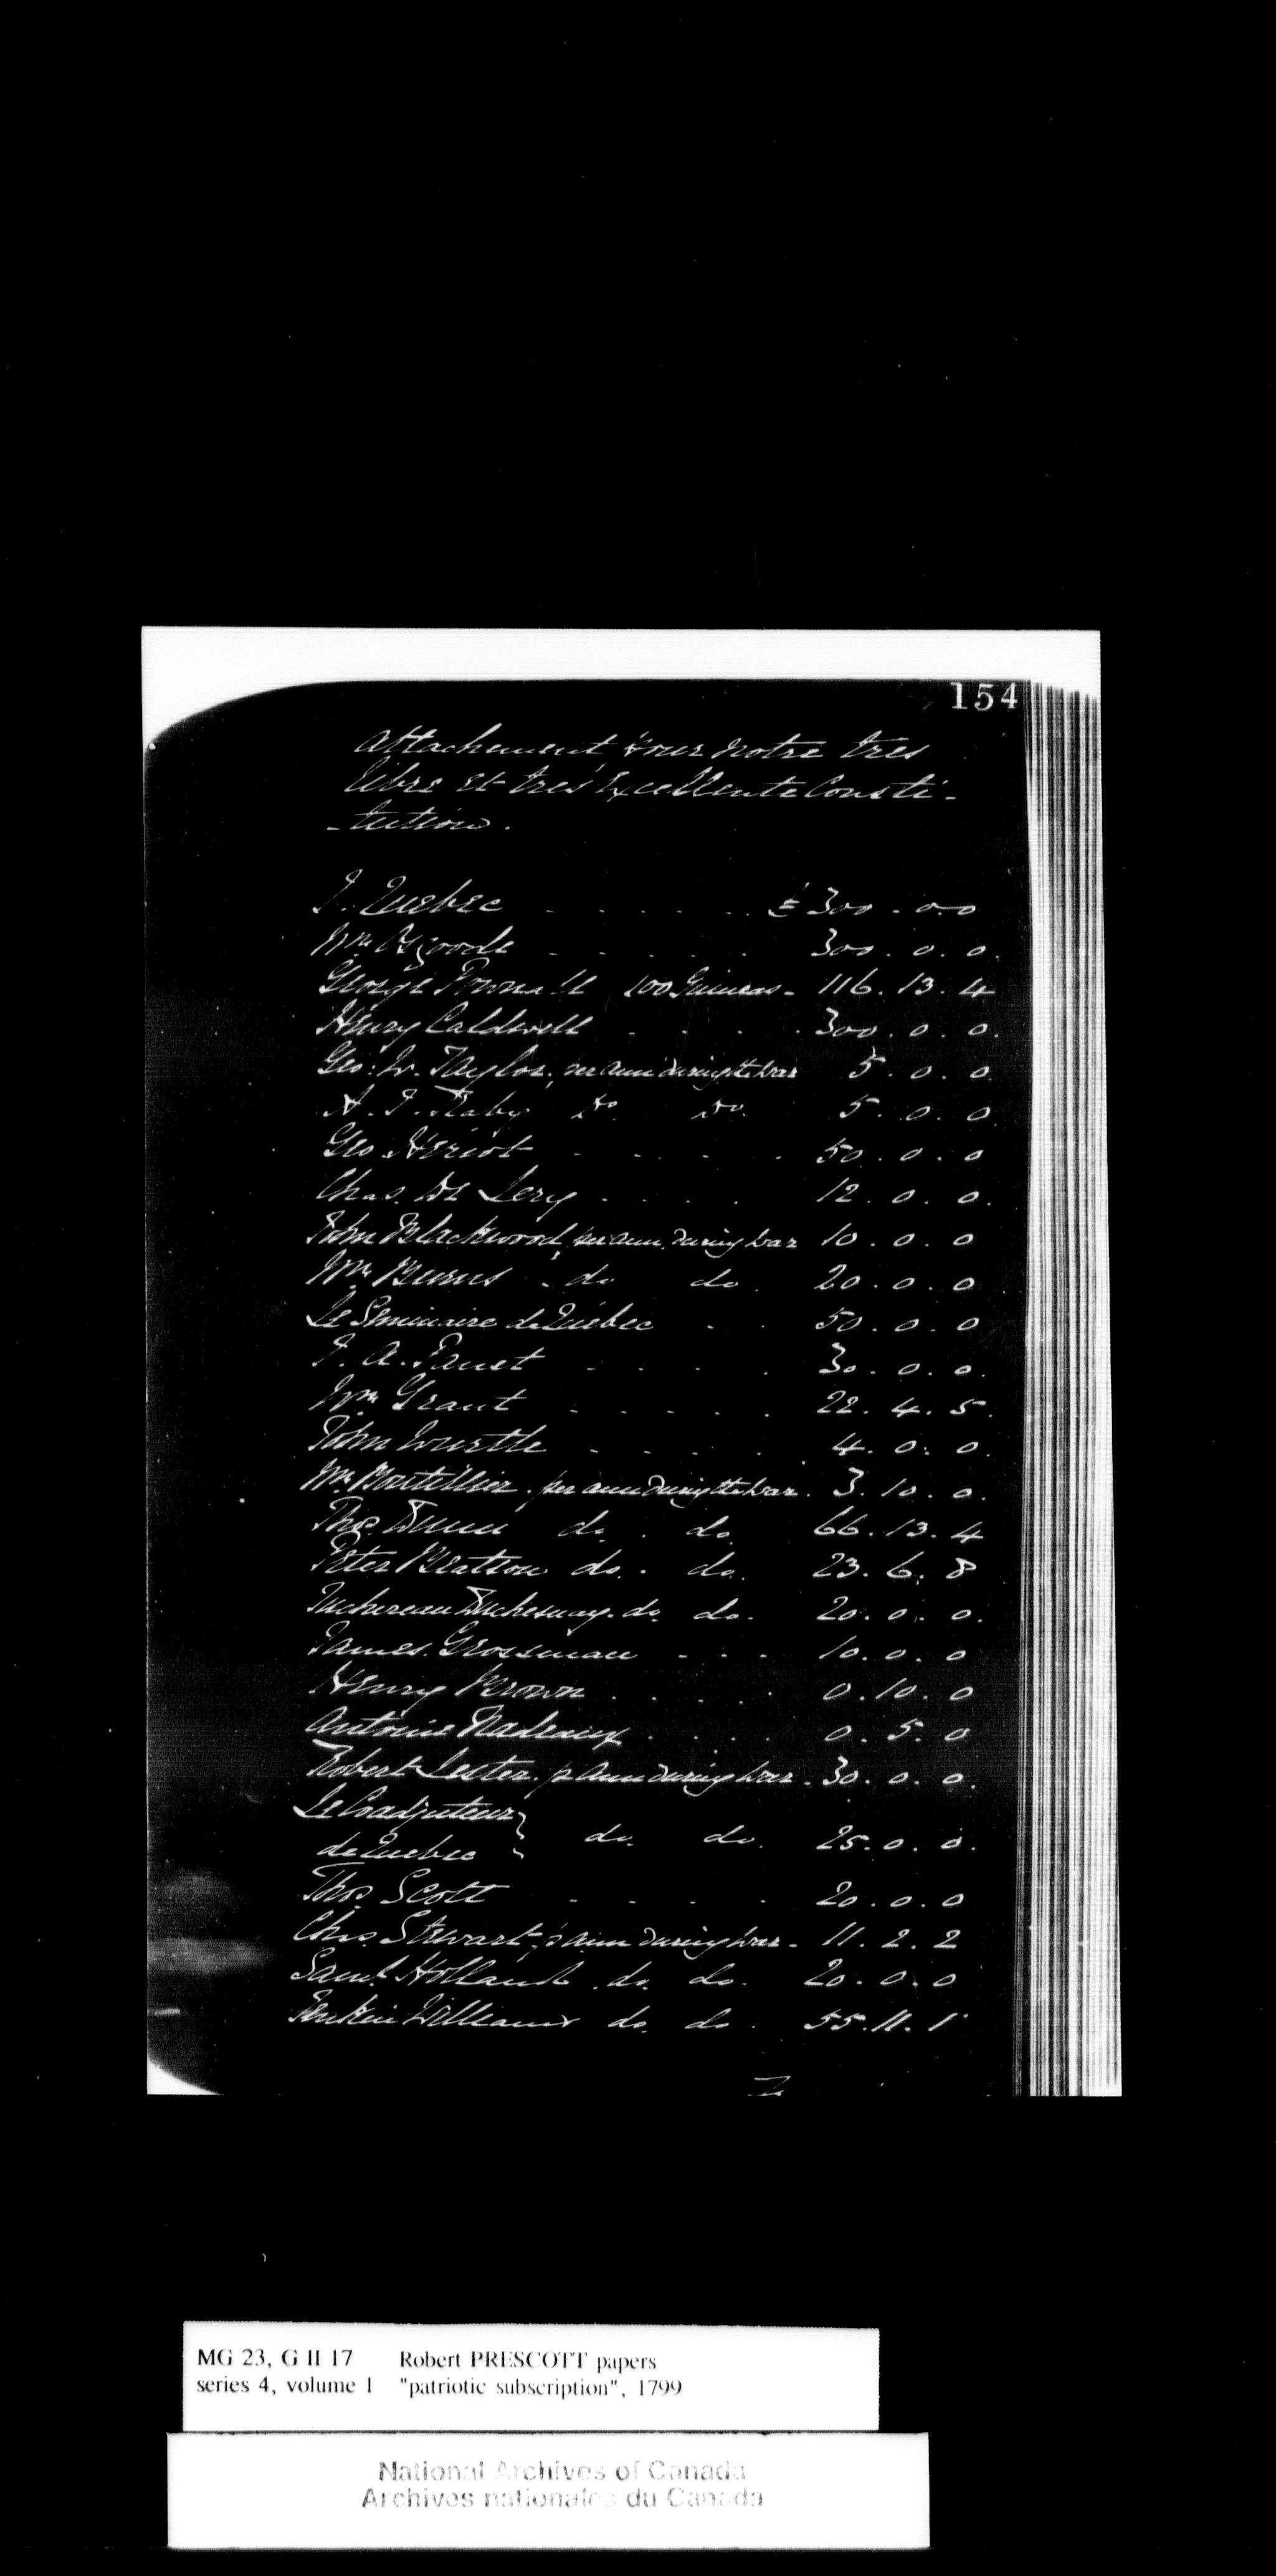 154
Attachement pour notre tres
libre et tres Excellente Consti-
-tution.
J. Quebec . . . . . . £ 300 . 0 . 0
Wm Osgoode . . . . . 300 . 0 . 0.
George Pownall 100 Guineas - 116 . 13 . 4
Henry Caldwell . . . . 300 . 0 . 0.
Geo: W. Taylor, per ann during the War 5 . 0 . 0.
A. J. Raby Do. Do. 5 . 0 . 0.
Geo. Heriot . . . . . 50 . 0 . 0
Chas. De Lery . . . . 12 . 0 . 0.
John Blackwood, per ann. during War 10 . 0 . 0
Wm Burns . do do . 20 . 0 . 0
Le Seminaire de Québec . . 50 . 0 . 0
J. A. Panet . . . . . 30 . 0 . 0.
Wm Grant . . . . . 22 . 4 . 5.
John Wurtle . . . . . 4 . 0 . 0.
Mr Boutillier . per ann during the War . 3 . 10 . 0.
Thos. Dunn do . do. 66 . 13 . 4
Peter Beatson do. . do. 23 . 6 . 8
Juchereau Duchesnay. do do. 20 . 0 . 0.
James Grossman . . . 10 . 0 . 0
Henry Brown . . . . . 0 . 10 . 0
Antoine Nadeaux . . . . 0 . 5 . 0
Robert Lester . p ann during War . 30 . 0 . 0.
Le Coadjuteur
de Quebec } do. do. 25 . 0 . 0.
Thos. Scott . . . . 20 . 0 . 0
Chas. Stewart, p ann during War - 11 . 2 . 2
Saml. Holland . do. do. 20 . 0 . 0
Jenkin Williams do. do . 55 . 11 . 1
MG 23, G II 17 Robert PRESCOTT papers
series 4, volume 1 "patriotic subscription", 1799
National Archives of Canada
Archives nationales du Canada